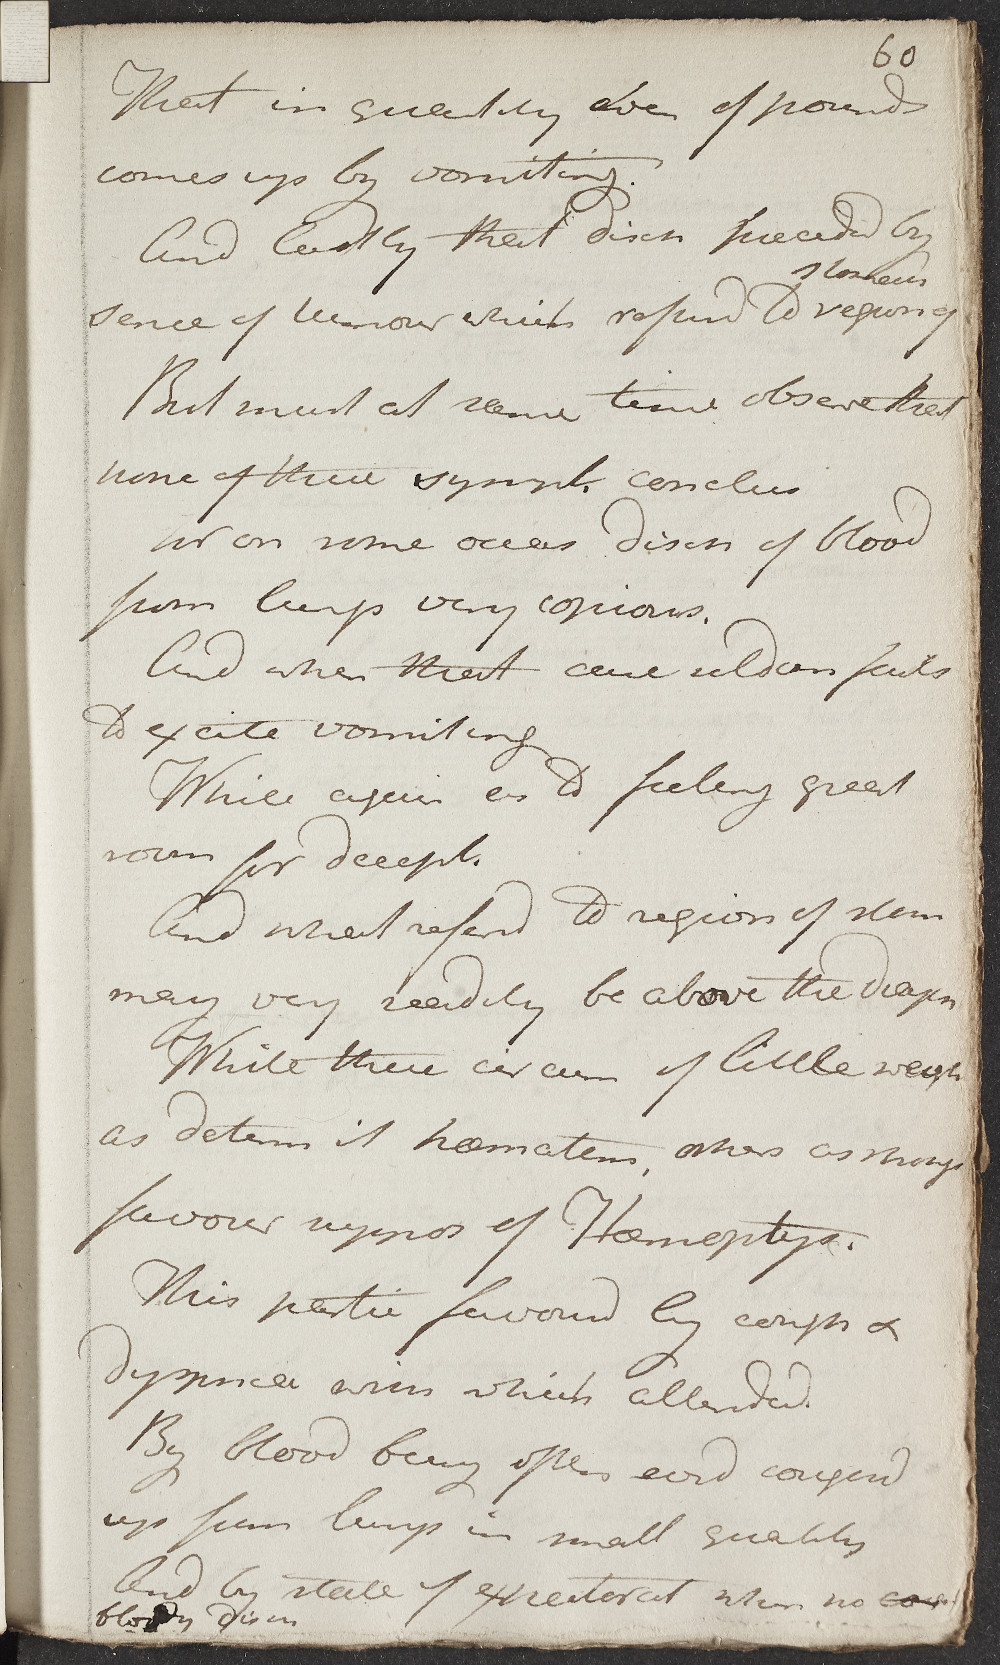 60
That in quantity even of pounds
comes up by vomiting.
And lastly that disch preceded by
stomach
sence of tumour which referd to region of
But must at same time observe that
none of these sympt. conclus
for on some occas disch of blood
from lungs very copious.
And when that case seldom fails
to excite vomiting
While again as to feeling great
room for decept.
And what referd to region of stom
may very readily be above the diaph
While these circum of little weigh
as determ it hæmatem, others as strong
favour suppos of Hæmoptys.
This partic favourd by cough &
dyspnœa with which attended.
By blood being often evid coughd
up from lungs in small quality
And by state of expectorat when no
bloody disch